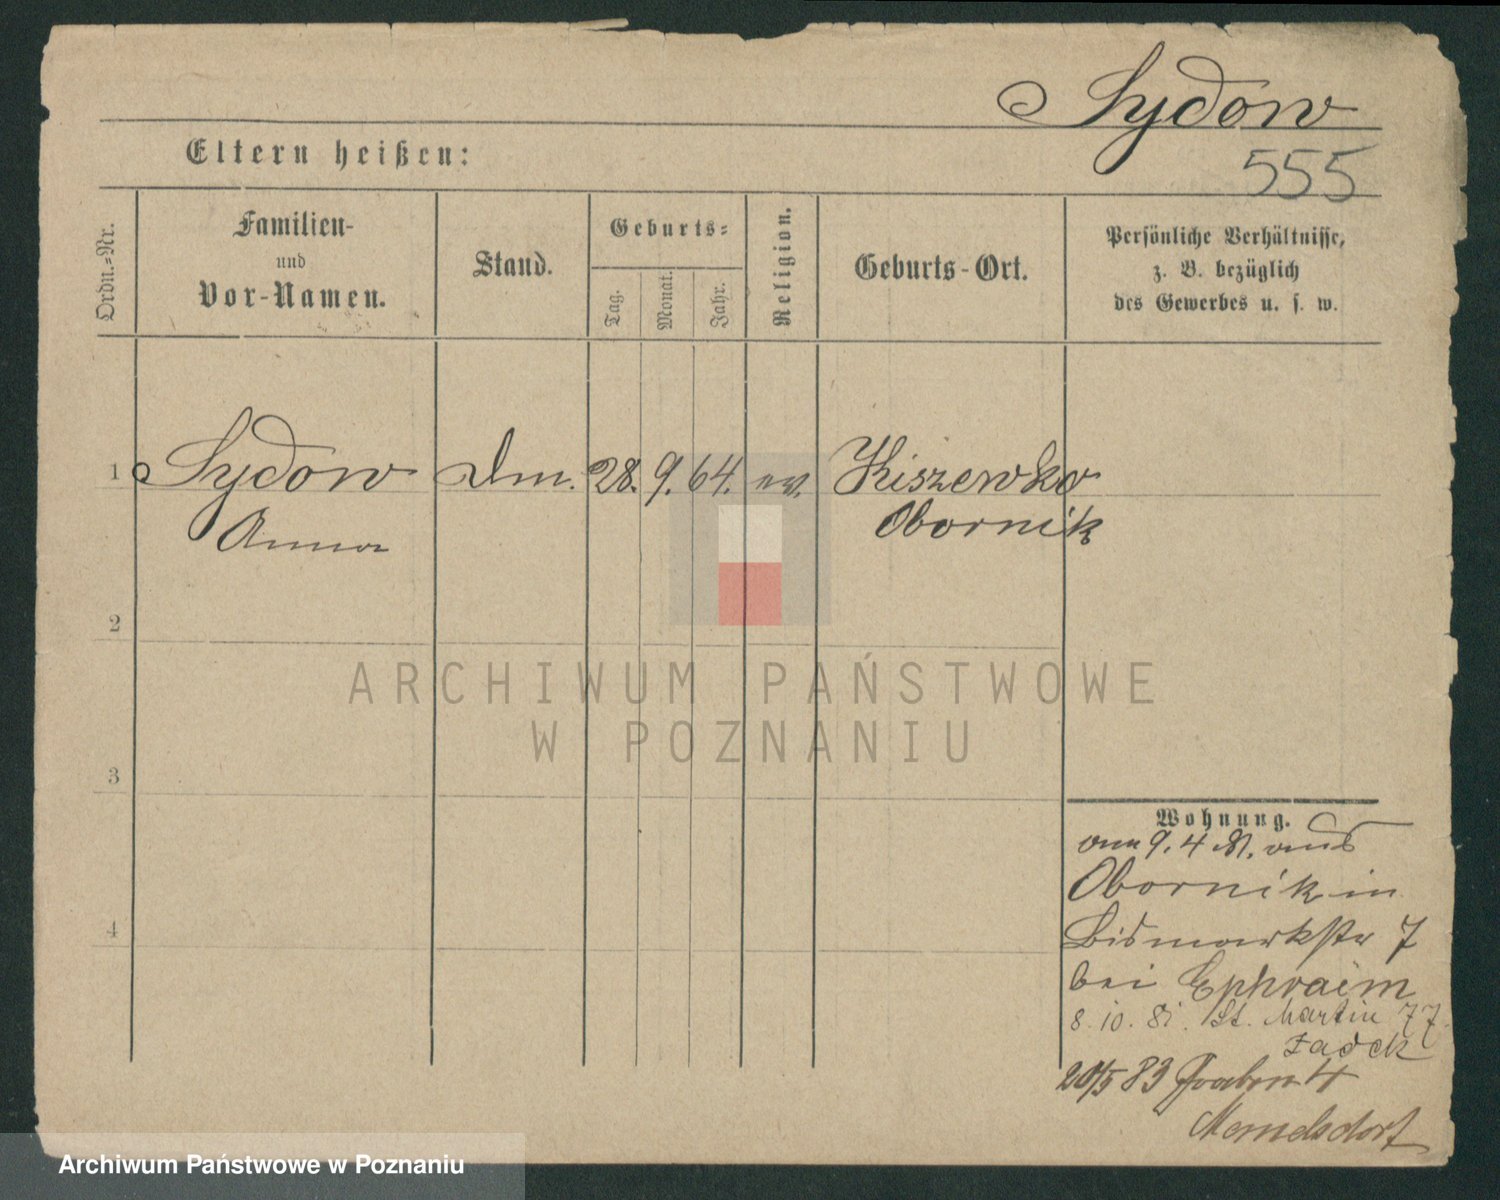 Sydow
555
Eltern heißen:
Ordn.-Nr.
Familien-
und
Vor-Namen.
Stand.
Geburts-
Tag.
Monat.
Jahr.
Religion.
Geburts-Ort.
Persönliche Verhältnisse,
z. B. bezüglich
des Gewerbes u. s. w.
1 Sydow Dm. 28. 9. 64. ev. Kiszewko
Anna Obornik
2
3
4
Wohnung.
am 9. 4 81. aus
Obornik in
Bismarkstr 7
bei Ephraim
8. 10. 81. St. Martin 77
Zadek
20/5 83 Graben 4
Memelsdorf
ARCHIWUM PAŃSTWOWE
W POZNANIU
Archiwum Państwowe w Poznaniu